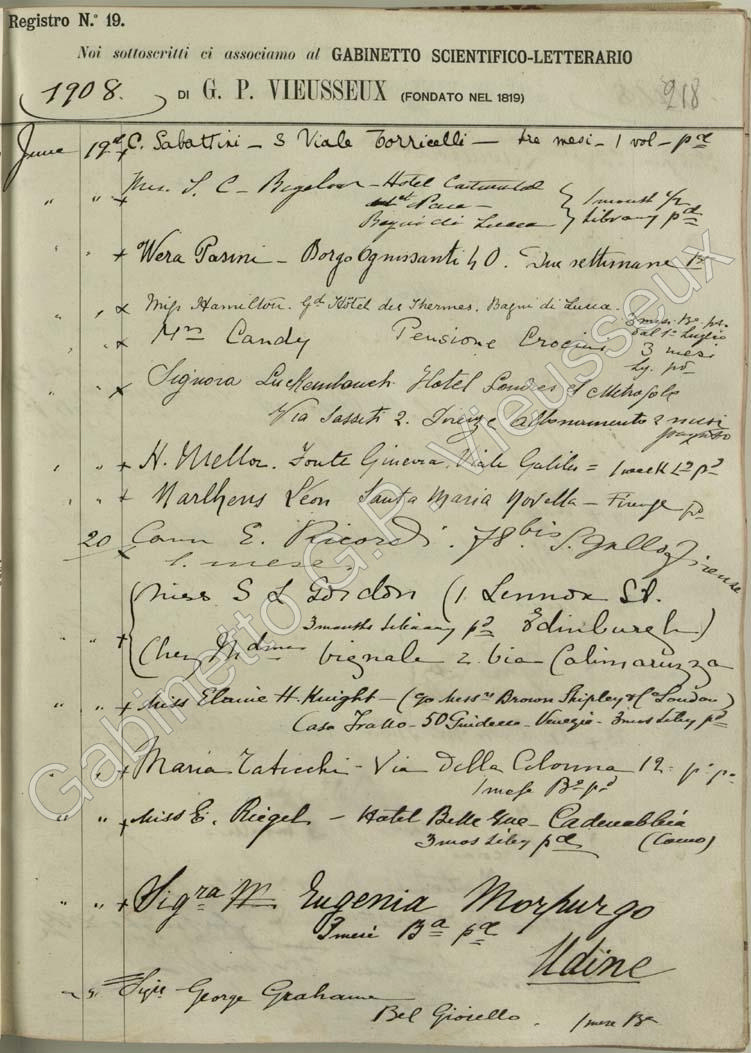 Registro N.º 19.
Noi sottoscritti ci associamo al GABINETTO SCIENTIFICO-LETTERARIO
1908. DI G. P. VIEUSSEUX (FONDATO NEL 1819) 218
June 19 C. Sabattini – 3 Viale Torricelli – tre mesi – 1 vol – pd
" " x Mrs. S. C. Bigelow – Hotel 1 month
Bagni di Lucca Library pd
" " x Wera Pasini – Borgo Ognissanti 40. Due settimane
" , x Miss Hamilton. Gd Hôtel des Thermes. Bagni di Lucca.
3 mesi
dal 1º Luglio
x Mrs Candy Pensione Crocini 3 mesi
x Signora Luckembauch Hotel Londres et Metropole
Via Sassetti 2. Firenze abbonamento 2 mesi
x H. Mellor. Fonte Ginevra. Viale Galileo = 1 week
x Marthens Léon Santa Maria Novella – Firenze
20 x Comm E. Ricordi. 78 bis S. Gallo Firenze
1. mese.
Miss S L Gordon (1 Lennox St.
3 months Library pd Edinburgh)
" " x Chez Mdme Vignale 2. via Calimaruzza
" " x Miss Elaine H. Knight – (c/o Messrs Brown Shipley & Co London)
Casa Frollo – 50 Giudecca – Venezia – 3 mos Liby pd
x Maria Taticchi – Via della Colonna 12
1 mese
" " x Miss E. Riegel – Hotel Belle Vue – Cadenabbia
3 mos Liby pd (Como)
" " x Sigra Eugenia Morpurgo
3 mesi Ba pd
Udine
George Grahame
Bel Gioiello. 1 mese
Gabinetto G.P. Vieusseux